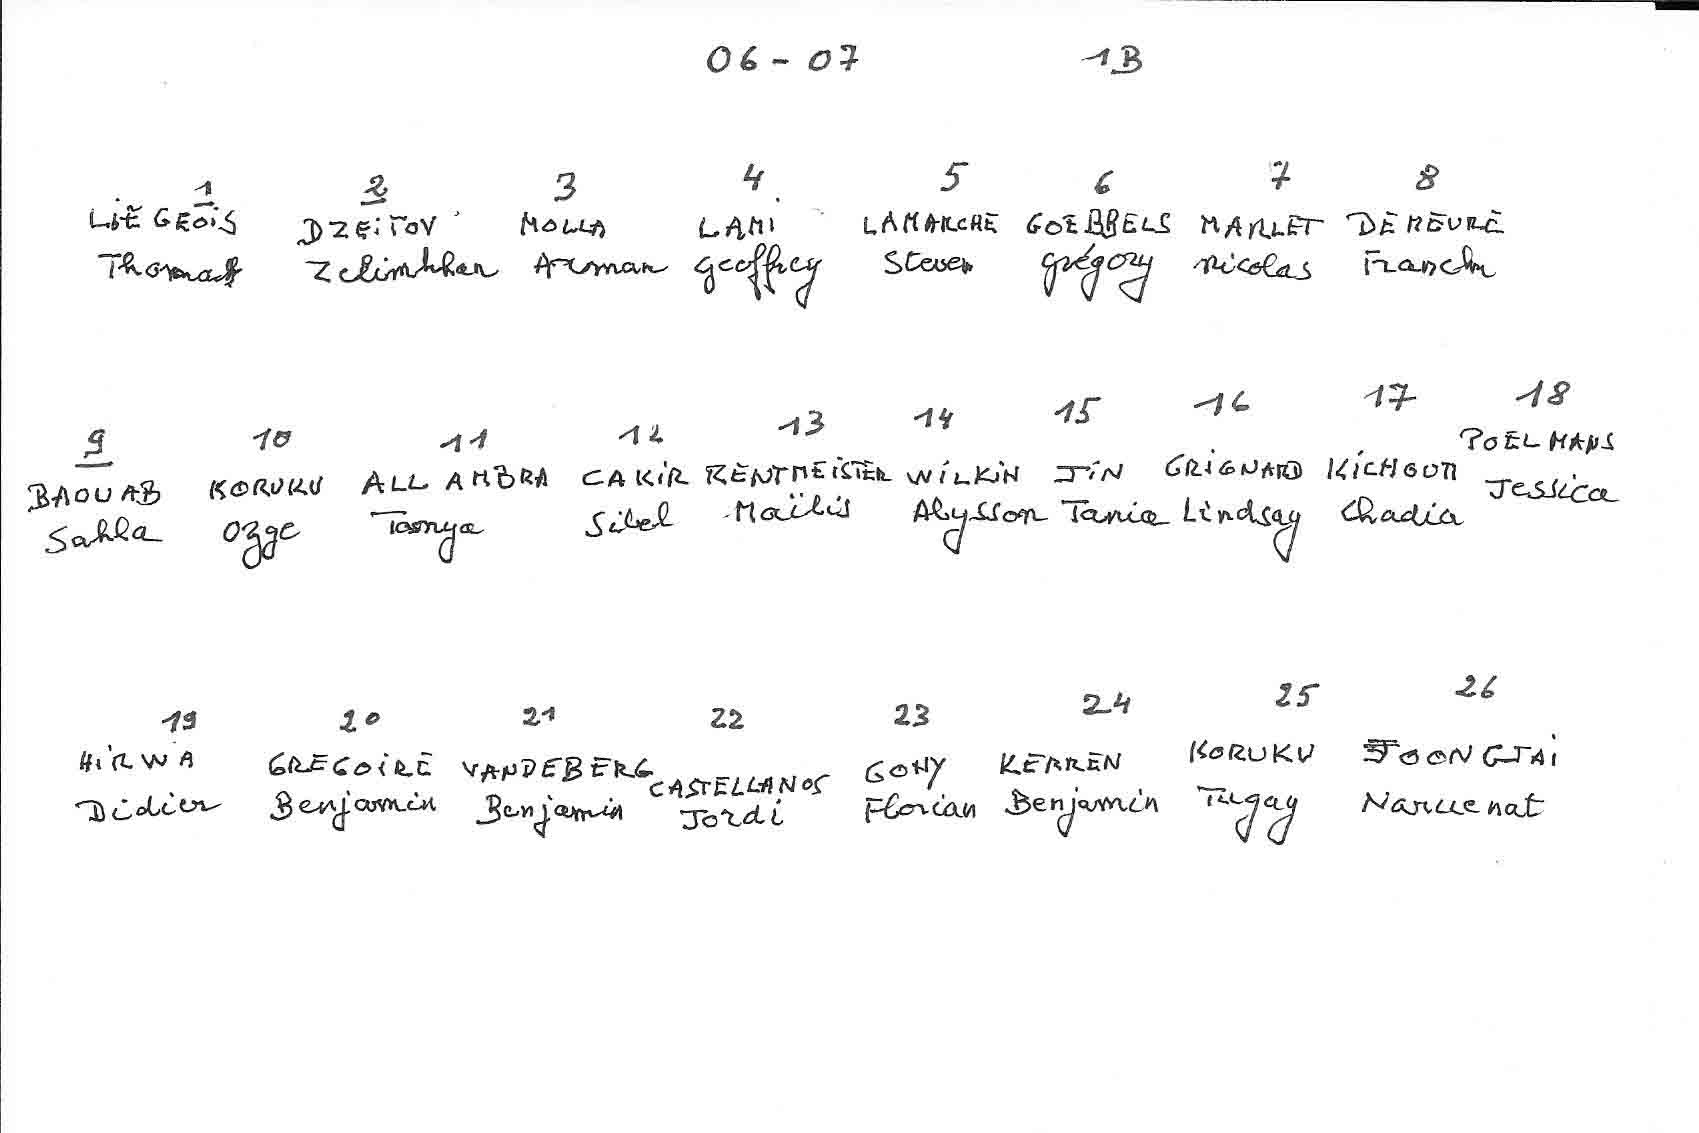 06-07 1B
1 2 3 4 5 6 7 8
LIÉGEOIS DZEITOV MOLLA LAMI LAMARCHE GOEBBELS MARLET DEMEURE
Thomas Zelimkhan Arman Geoffrey Steven Grégory Nicolas
9 10 11 12 13 14 15 16 17 18
BAOUAB KORUKU ALLAMBRA CAKIR RENTMEISTER WILKIN JIN GRIGNARD POELMANS
Sahla Ozge Tamya Sibel Maïlis Alysson Tania Lindsay Chadia Jessica
19 20 21 22 23 24 25 26
HIRWA GREGOIRE VANDEBERG CASTELLANOS GOHY KERREN KORUKU JOONGJAI
Didier Benjamin Benjamin Jordi Florian Benjamin Tugay Naruenat